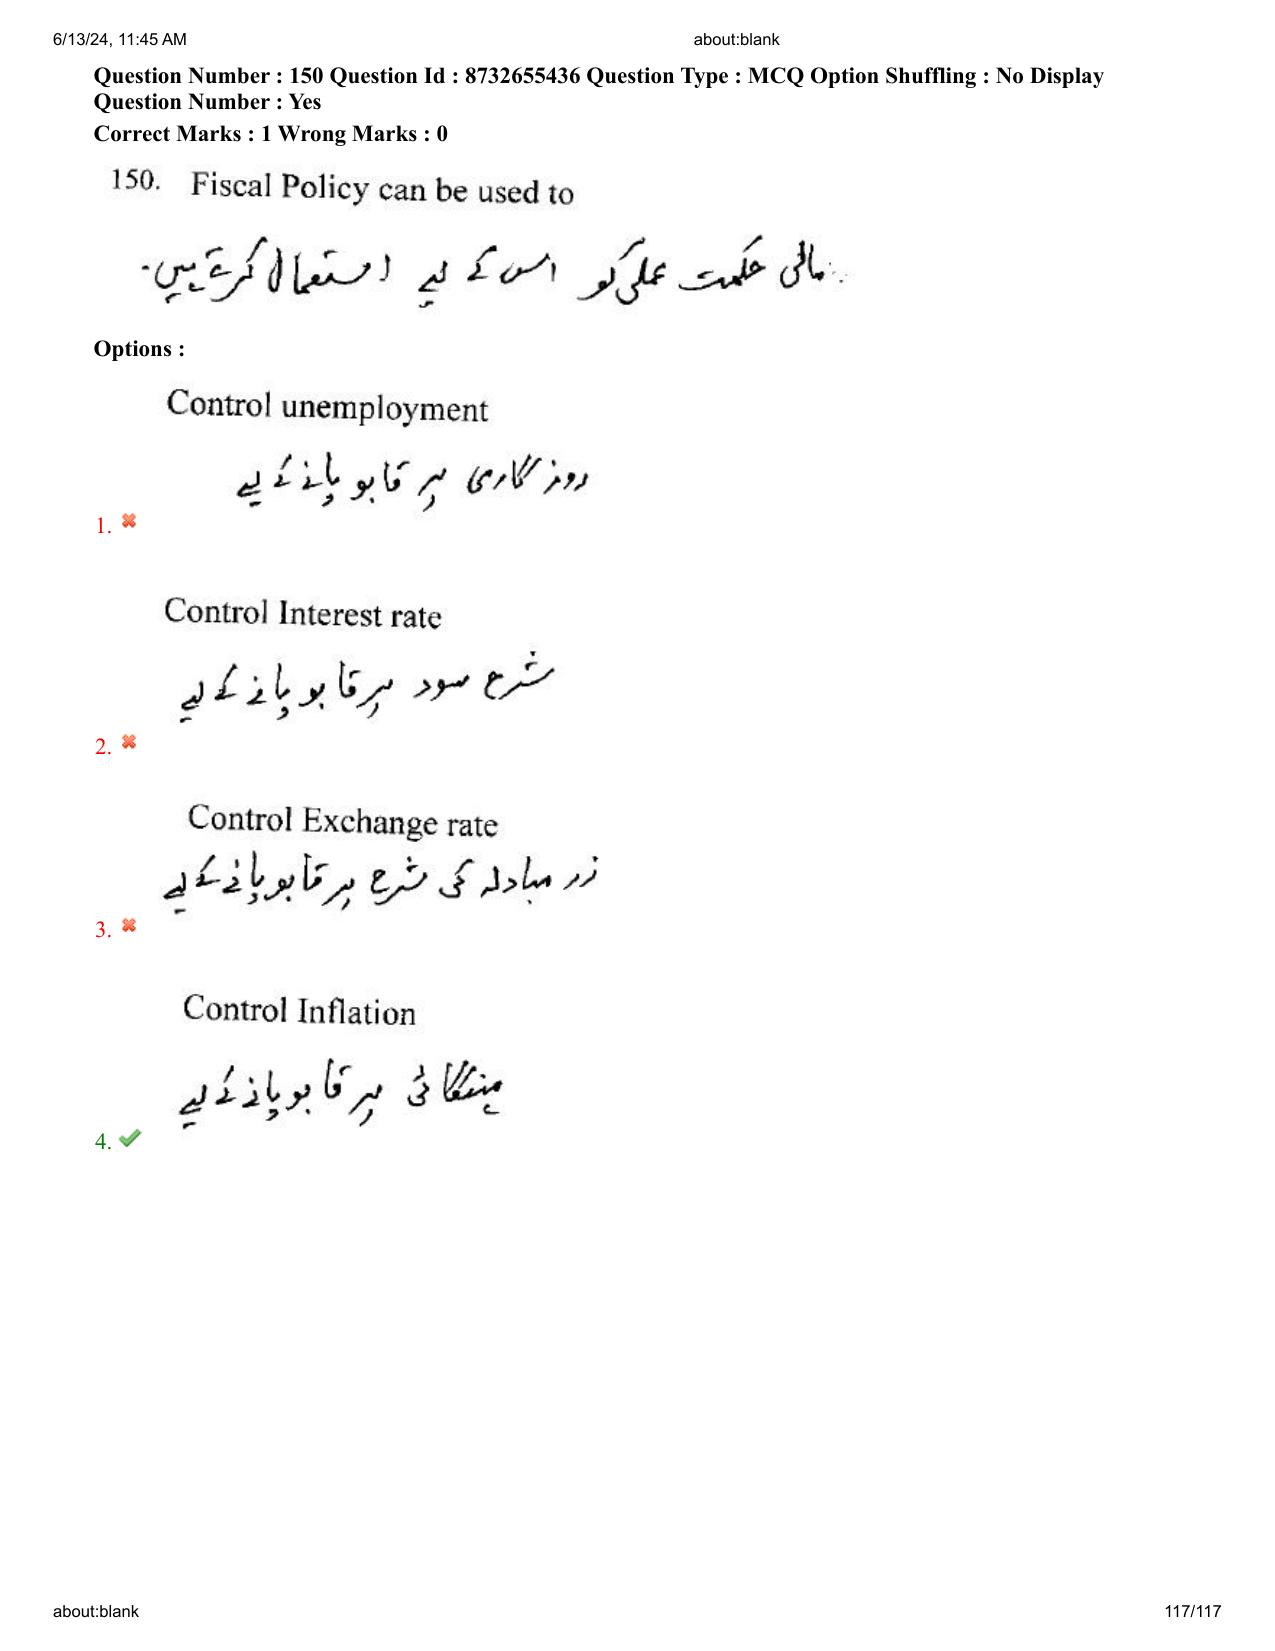 6/13/24, 11:45 AM about:blank
Question Number : 150 Question Id : 8732655436 Question Type : MCQ Option Shuffling : No Display
Question Number : Yes
Correct Marks : 1 Wrong Marks : 0
150. Fiscal Policy can be used to
مالی حکمت عملی کو اس کے لیے استعمال کرتے ہیں۔
Options :
Control unemployment
روزگاری پر قابو پانے کے لیے
1.
Control Interest rate
شرح سود پر قابو پانے کے لیے
2.
Control Exchange rate
زر مبادلہ کی شرح پر قابو پانے کے لیے
3.
Control Inflation
مہنگائی پر قابو پانے کے لیے
4.
about:blank 117/117